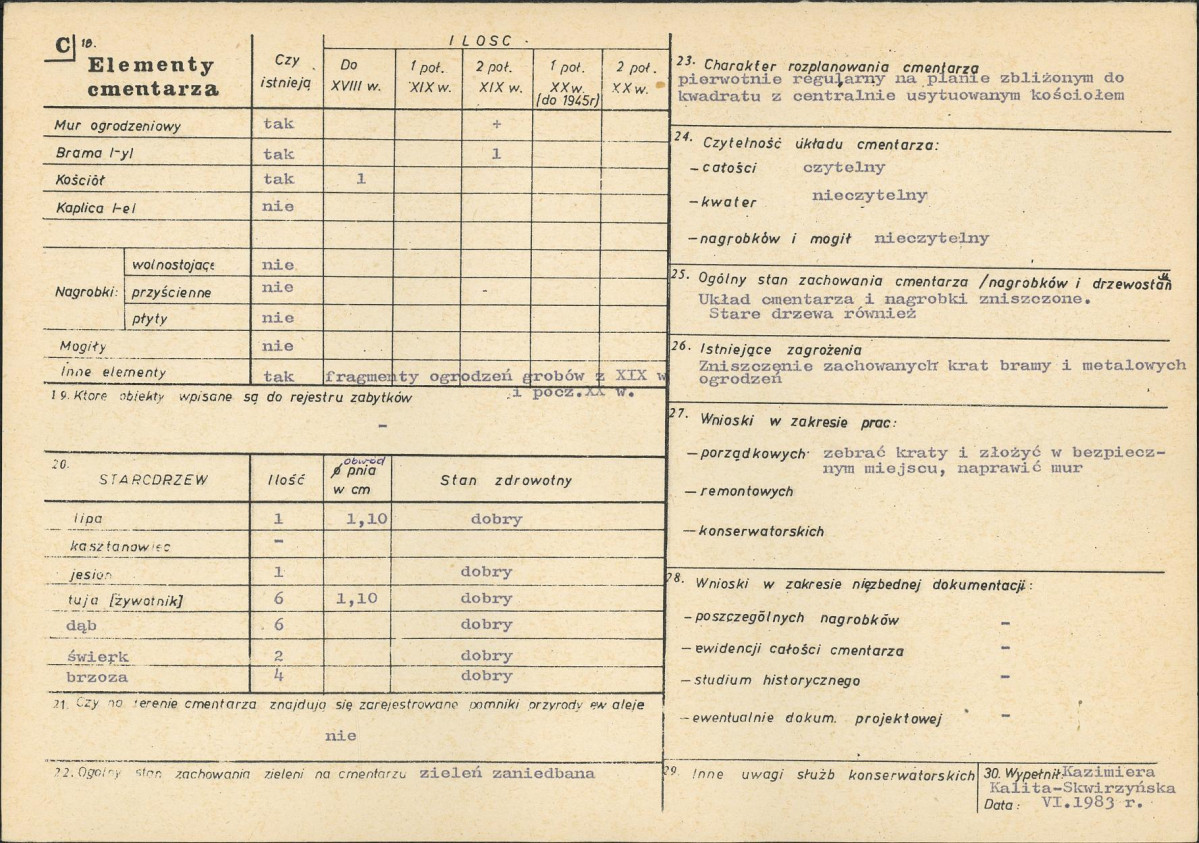 C 18.
Elementy
cmentarza
Czy
istnieją
ILOSC
Do
XVIII w.
1 poł.
XIX w.
2 poł.
XIX w.
1 poł.
XX w.
(do 1945r)
2 poł.
XX w.
Mur ogrodzeniowy tak +
Brama l-yl tak 1
Kościół tak 1
Kaplica l-el nie
Nagrobki:
wolnostojące nie
przyścienne nie -
płyty nie
Mogiły nie
Inne elementy tak fragmenty ogrodzeń grobów z XIX w
i pocz.XX w.
19. Ktore obiekty wpisane są do rejestru zabytków
-
20.
STARODRZEW
Ilość
obwód
ø pnia
w cm
Stan zdrowotny
lipa 1 1,10 dobry
kasztanowiec -
jesion 1 dobry
tuja [żywotnik] 6 1,10 dobry
dąb 6 dobry
świerk 2 dobry
brzoza 4 dobry
21. Czy na terenie cmentarza znajdują się zarejestrowane pomniki przyrody ew aleje
nie
22. Ogólny stan zachowania zieleni na cmentarzu zieleń zaniedbana
23. Charakter rozplanowania cmentarza
pierwotnie regularny na planie zbliżonym do
kwadratu z centralnie usytuowanym kościołem
24. Czytelność układu cmentarza:
- całości czytelny
- kwater nieczytelny
- nagrobków i mogił nieczytelny
25. Ogólny stan zachowania cmentarza /nagrobków i drzewostanu
Układ cmentarza i nagrobki zniszczone.
Stare drzewa również
26. Istniejące zagrożenia
Zniszczenie zachowanych krat bramy i metalowych
ogrodzeń
27. Wnioski w zakresie prac:
- porządkowych zebrać kraty i złożyć w bezpiecz-
nym miejscu, naprawić mur
- remontowych
- konserwatorskich
28. Wnioski w zakresie niezbędnej dokumentacji:
- poszczególnych nagrobków -
- ewidencji całości cmentarza -
- studium historycznego -
- ewentualnie dokum. projektowej -
29. Inne uwagi służb konserwatorskich
30. Wypełnił: Kazimiera
Kalita-Skwirzyńska
Data: VI.1983 r.